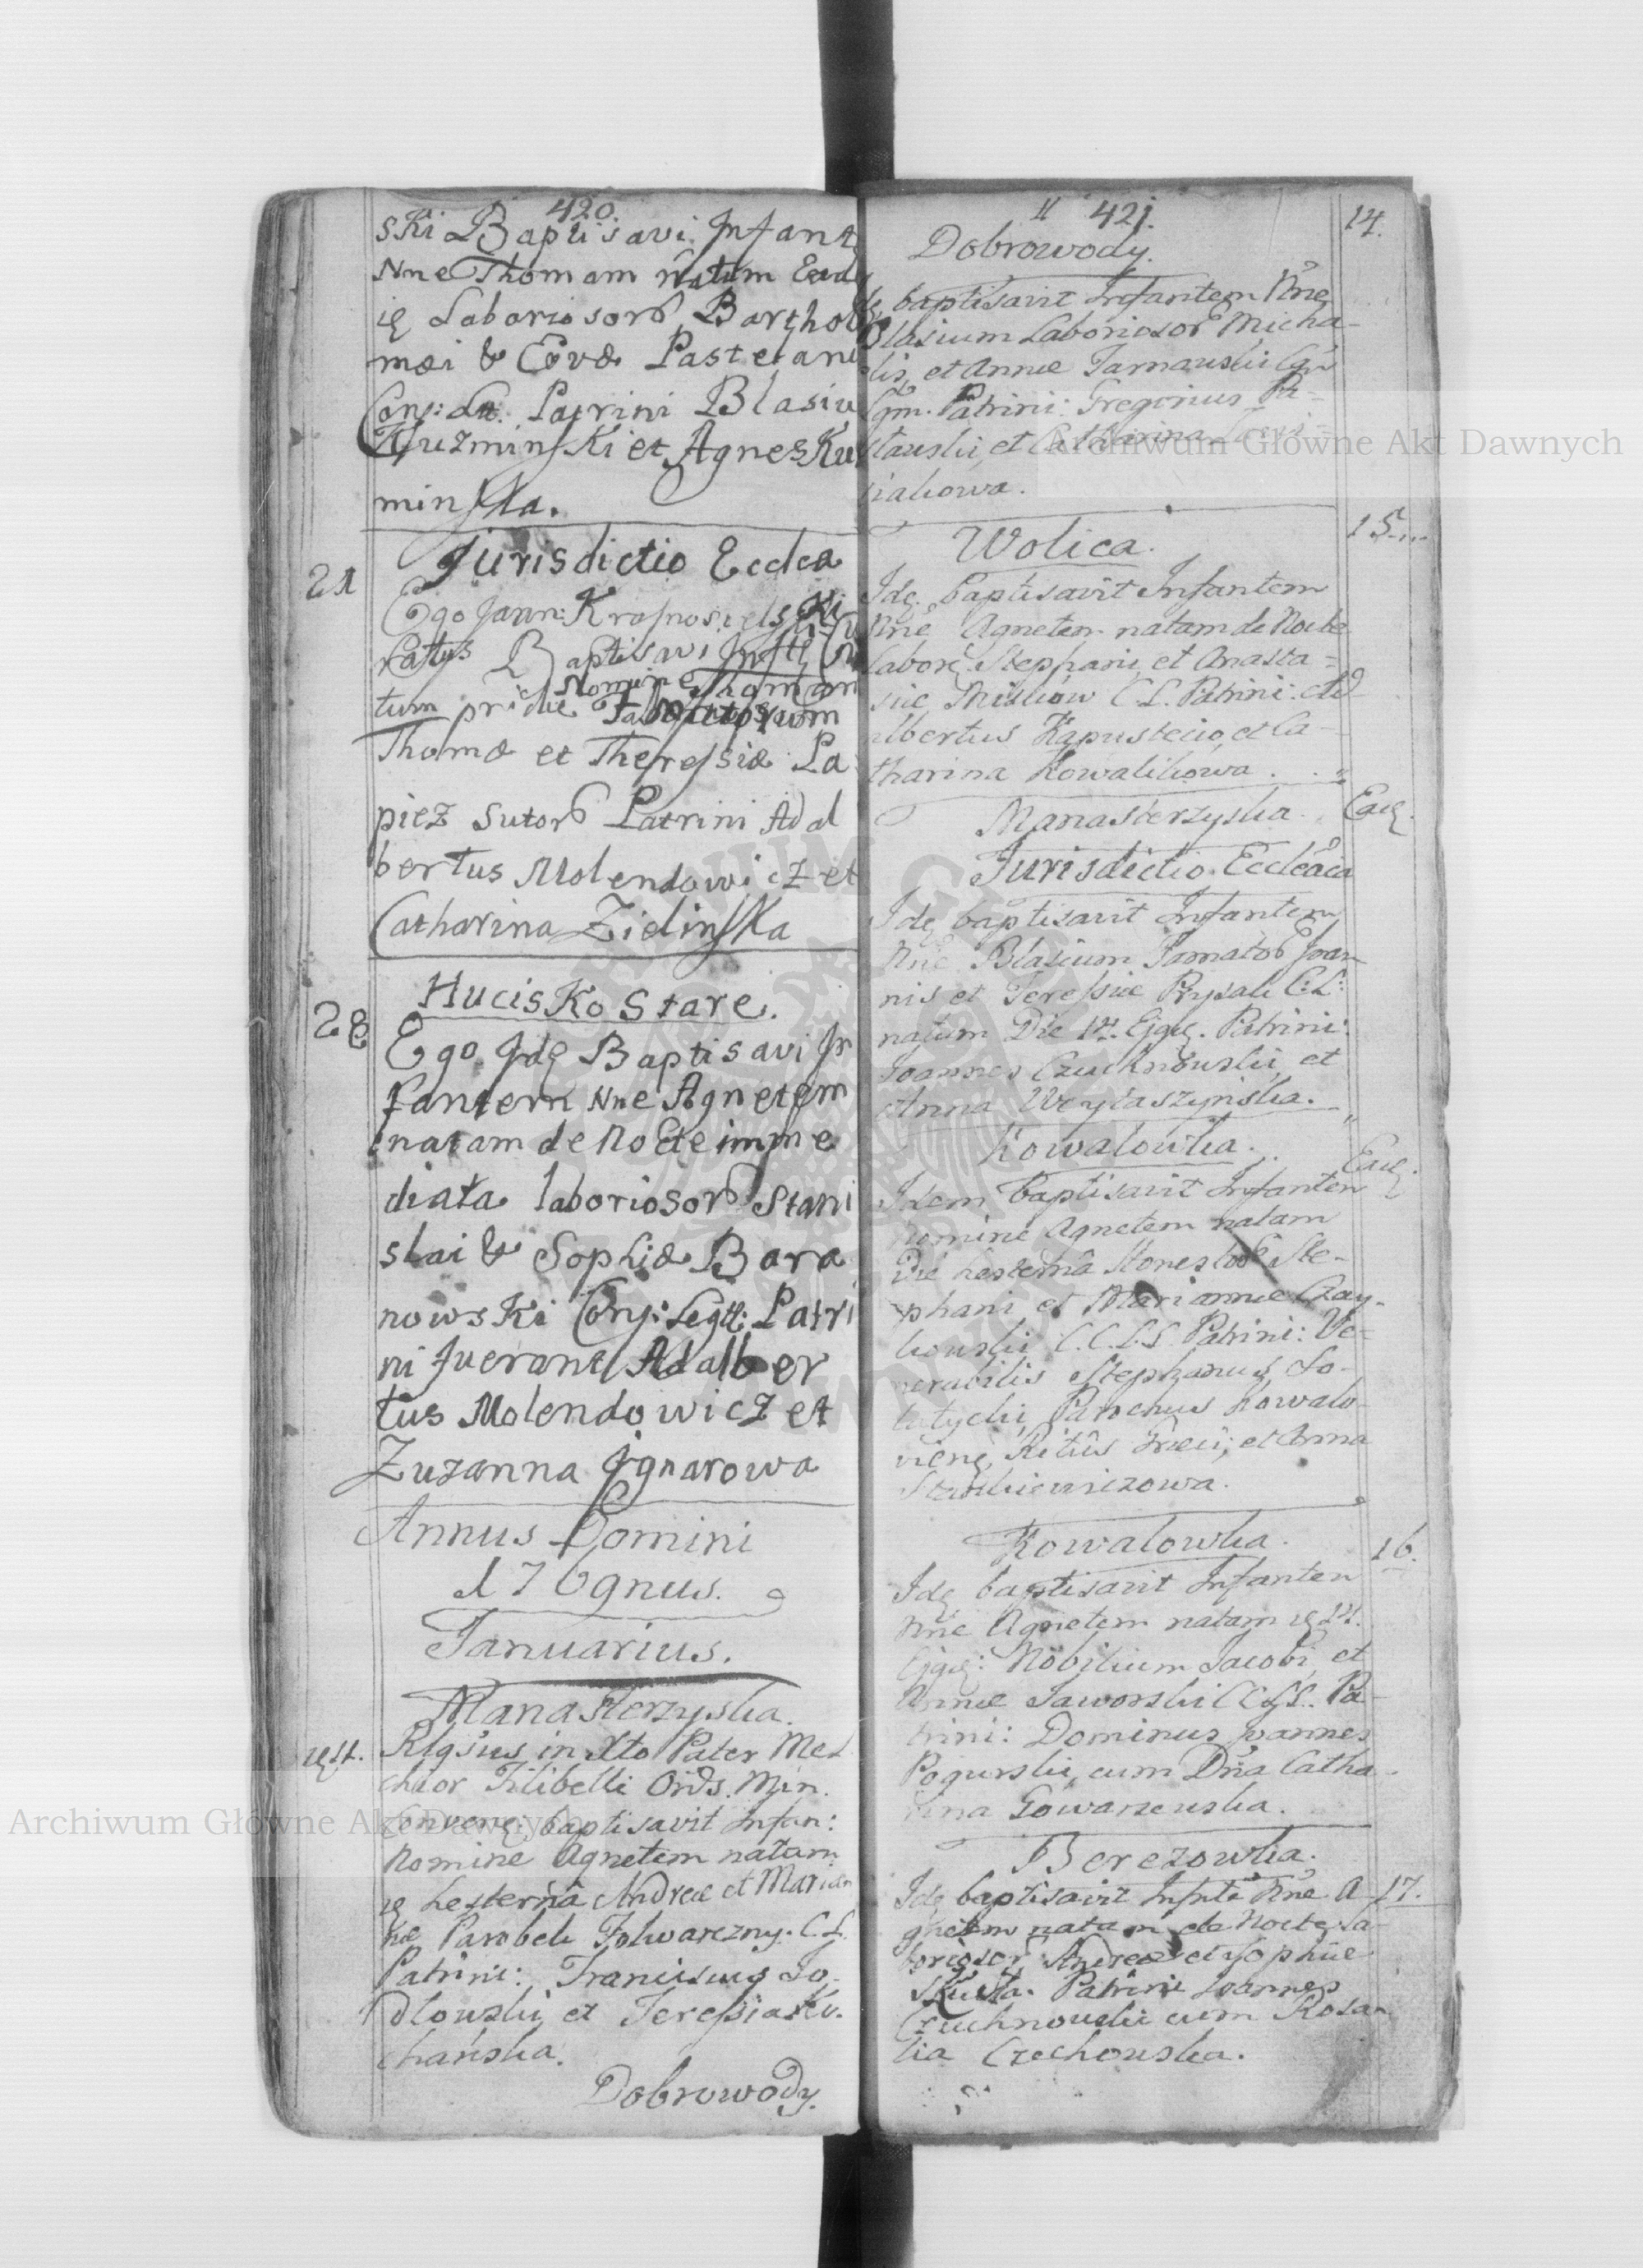 420.
ski Baptisavi Infant
Nne Thomam natum Ead
ie Laboriosor Bartholo
mæi & Evæ Pastetani
Conj: Lt. Patrini Blasiu
Kuzminski et Agnes Ku
minska.
Jurisdictio Ecclea
21
Ego Joann: Krasnosielski
Baptisavi Inftt
Nomine Thomam
tum pridie Laboriosorum
Thomæ et Theressiæ La
piez Sutor Patrini Adal
bertus Molendowicz et
Catharina Zielinska
Hucisko Stare.
28
Ego Jdę Baptisavi In
fantem Nne Agnetem
natam de Nocte imme
diata laboriosor Stani
slai & Sophiæ Bara
nowski Conj: Legtt: Patri
ni fuerant Adalber
tus Molendowicz et
Zuzanna Jgnarowa
Annus Domini
176gnus.
Januarius.
Manasterzyska.
Rlgsus in Xto Pater Mel
chior Filibelli Ords. Min.
Convenę: baptisavit Infan:
Nomine Agnetem natam
hesterna Andreæ et Marian
næ Parobek Folwarczny. C. L.
Patrini: Franciscus Jo-
dlowski et Teressia Ko-
chańska.
Dobrowody.
11 421.
14.
Dobrowody.
Idę baptisavit Infantem Nne
Blasium Laboriosor Micha-
lis, et Annæ Tarnawski Con
Lgm. Patrini: Gregorius Pa-
stawski, et Catharina
niakowa.
15
Wolica.
Idę. baptisavit Infantem
Nne Agnetem natam de Nocte
labore. Stephani, et Anasta=
siæ Miskow C L. Patrini: Ad
albertus Kapustecio, et Ca-
tharina Kowalikowa.
Manasterzyska.
Eadę.
Jurisdictio. Eccleãca
Idę baptisavit Infantem
Nne Blasium Famator Joan
nis et Teressiæ Prysak C: L:
natum Die 14. Ejgę. Patrini:
Joannes Czuchnowski, et
Anna Weytaszynska.
Kowalowka.
Eadę.
Idem baptisavit Infantem
Nomine Agnetem natam
Die hesternâ Honestor Ste-
phani et Mariannæ Czay-
kowski C.C.L.L. Patrini: Ve-
nerabilis Stephanus So-
latycki, Parochus Kowalo-
vienę, Ritûs Græci, et Anna
Stankiewiczowa.
Kowalowka.
16.
Idę baptisavit Infantem
Nne Agnetem natam 14.
Ejgę: Nobilium Jacobi, et
Annæ Jaworski CCLL. Pa-
trini: Dominus Joannes
Pogurski, cum Dna Catha-
rina Gowarzewska.
Berezowka.
17.
Idę baptisavit Infnte Nne A-
gnetem natam de Nocte, la-
boriosor Andreæ et Sophiæ
Skuska. Patrini Joannes
Czuchnowski cum Rosa-
lia Czechowska.
Archiwum Główne Akt Dawnych
Archiwum Główne Akt Dawnych